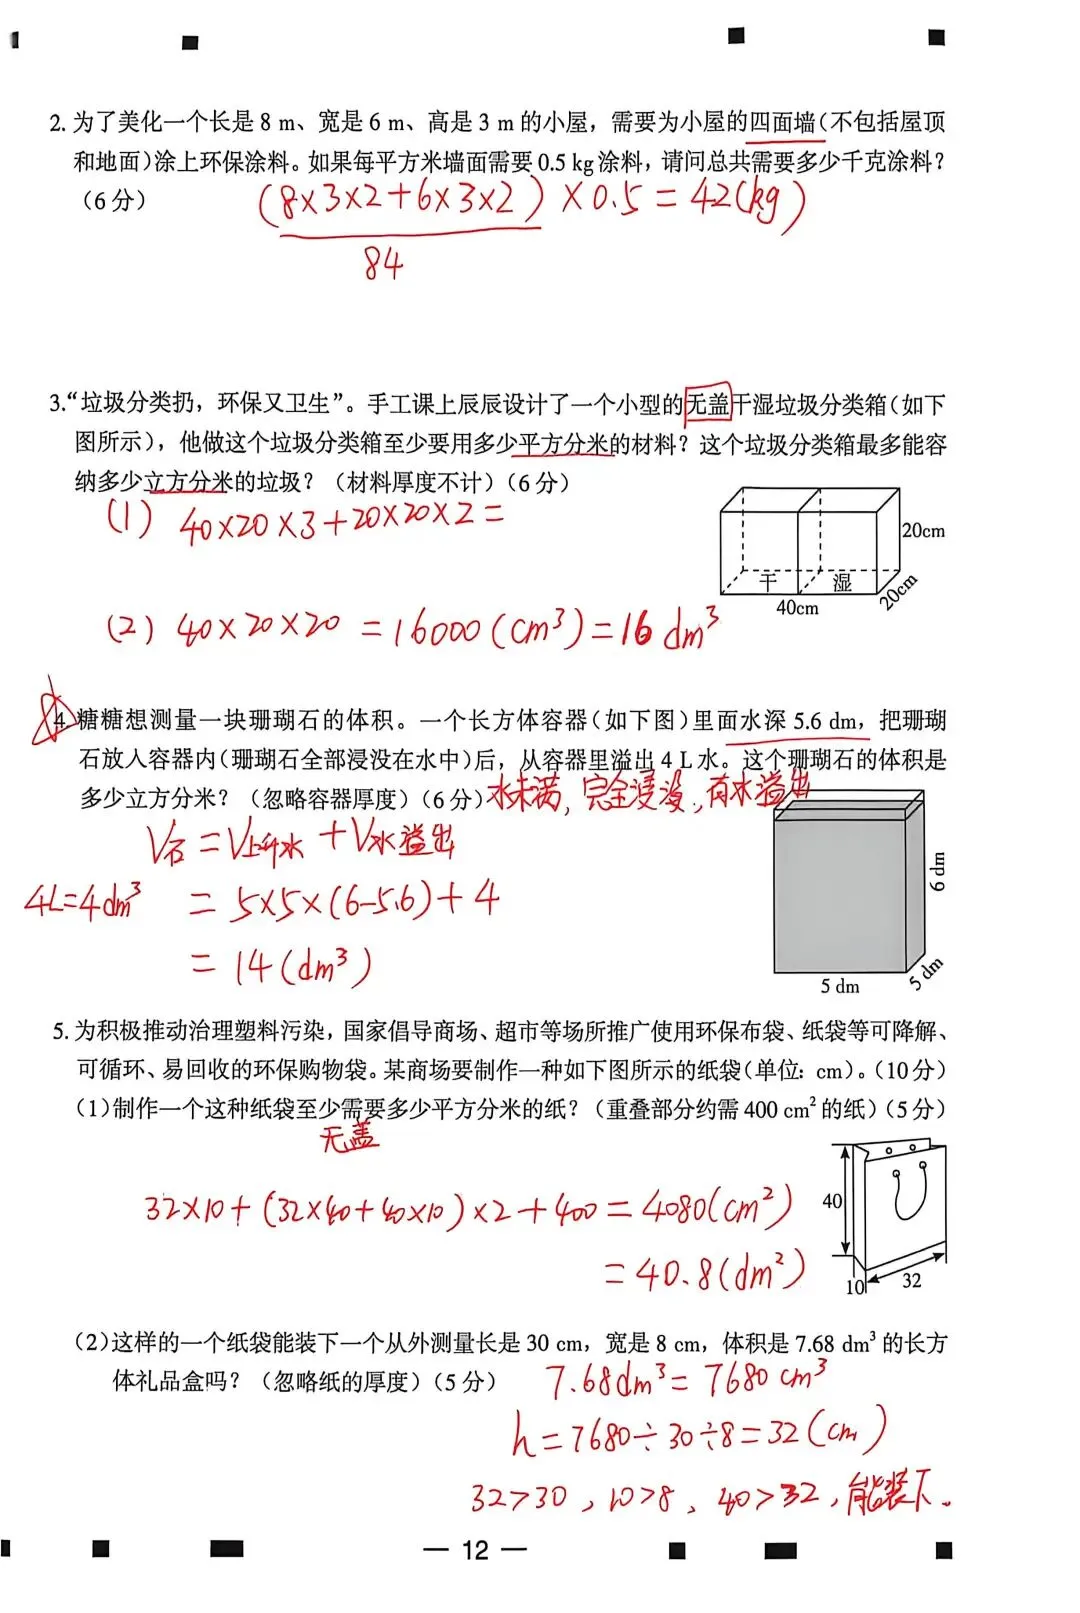 2. 为了美化一个长是 8 m、宽是 6 m、高是 3 m 的小屋，需要为小屋的四面墙(不包括屋顶
和地面)涂上环保涂料。如果每平方米墙面需要 0.5 kg 涂料，请问总共需要多少千克涂料？
(6 分)
(8×3×2+6×3×2)×0.5=42(kg)
84
3.“垃圾分类扔，环保又卫生”。手工课上辰辰设计了一个小型的无盖干湿垃圾分类箱(如下
图所示)，他做这个垃圾分类箱至少要用多少平方分米的材料？这个垃圾分类箱最多能容
纳多少立方分米的垃圾？(材料厚度不计)(6 分)
(1) 40×20×3+20×20×2=
20cm
干 湿
40cm
20cm
(2) 40×20×20=16000(cm³)=16dm³
4. 糖糖想测量一块珊瑚石的体积。一个长方体容器(如下图)里面水深 5.6 dm，把珊瑚
石放入容器内(珊瑚石全部浸没在水中)后，从容器里溢出 4 L 水。这个珊瑚石的体积是
多少立方分米？(忽略容器厚度)(6 分)
水未满，完全浸没，有水溢出
V石=V上升水+V水溢出
4L=4dm³
=5×5×(6-5.6)+4
=14(dm³)
6 dm
5 dm
5 dm
5. 为积极推动治理塑料污染，国家倡导商场、超市等场所推广使用环保布袋、纸袋等可降解、
可循环、易回收的环保购物袋。某商场要制作一种如下图所示的纸袋(单位：cm)。(10 分)
(1)制作一个这种纸袋至少需要多少平方分米的纸？(重叠部分约需 400 cm² 的纸)(5 分)
无盖
32×10+(32×40+40×10)×2+400=4080(cm²)
=40.8(dm²)
40
10
32
(2)这样的一个纸袋能装下一个从外测量长是 30 cm，宽是 8 cm，体积是 7.68 dm³ 的长方
体礼品盒吗？(忽略纸的厚度)(5 分)
7.68dm³=7680cm³
h=7680÷30÷8=32(cm)
32>30，10>8，40>32，能装下。
— 12 —